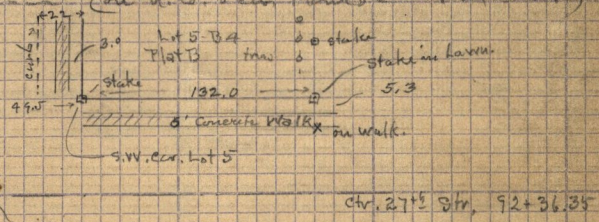 22
Curb
3.0
Lot 5-B4
Plat B
stake
stake in Lawn.
Stake
132.0
5.3
49.5
6' Concrete Walk
x on walk.
S.W. cor. Lot 5
Ctr. 27th Str. 92+36.35